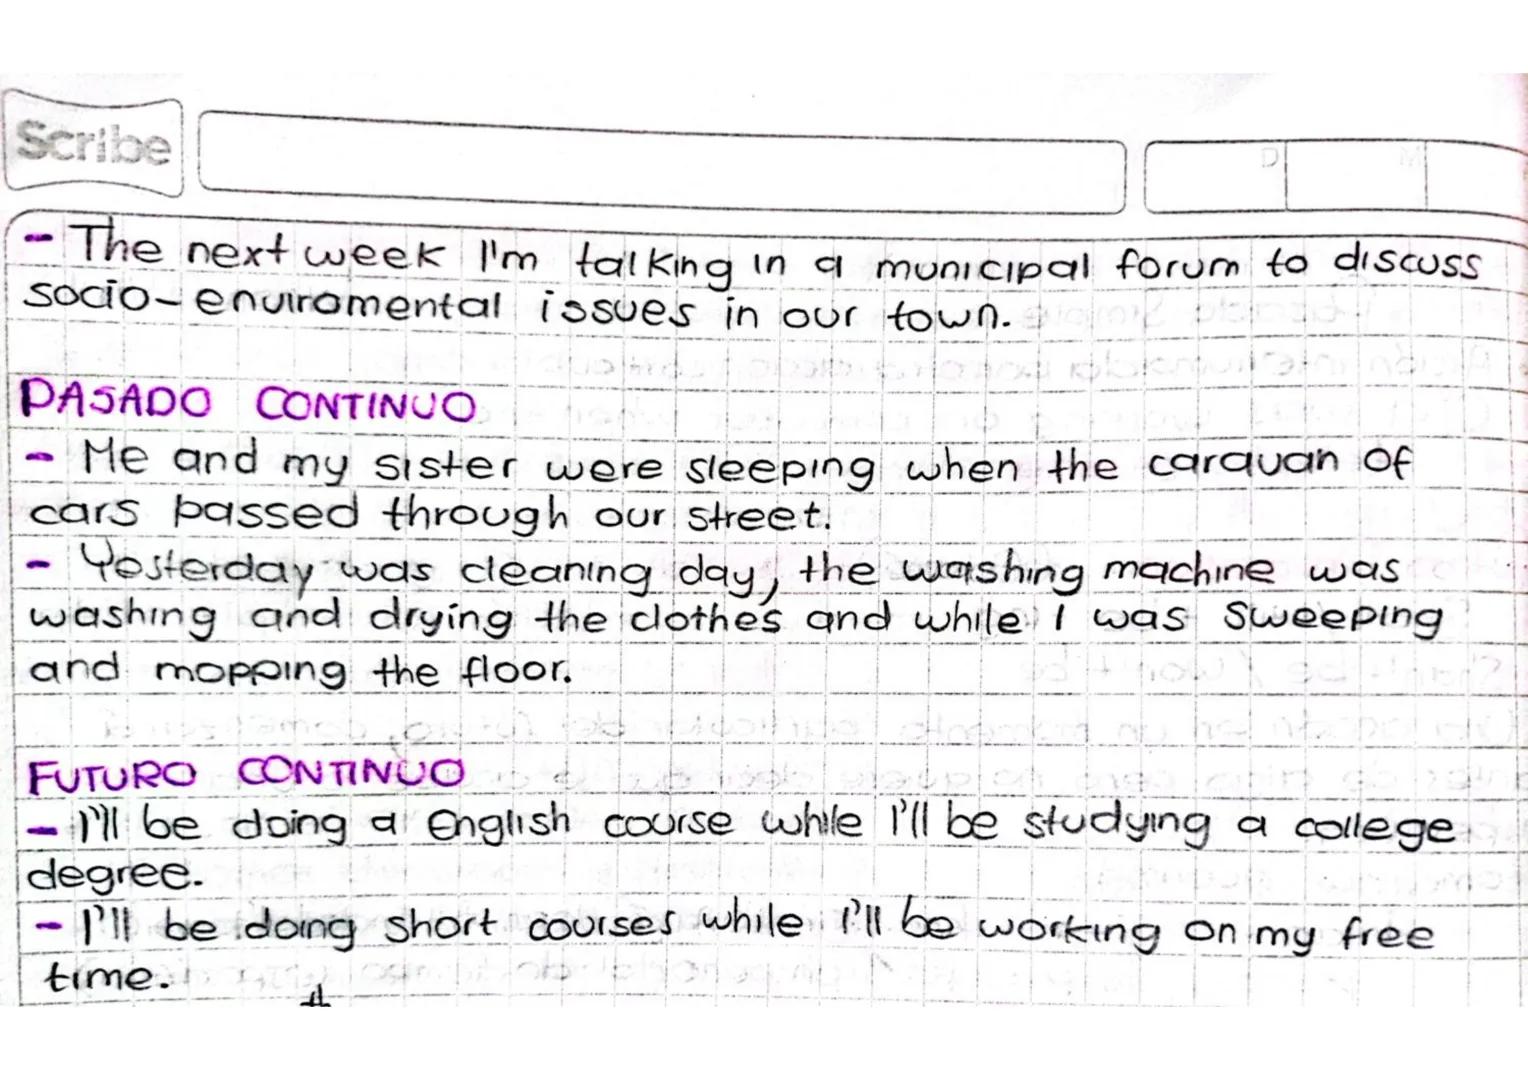 Scribe
D M
- The next week I'm talking in a municipal forum to discuss
socio-enviromental issues in our town.
PASADO CONTINUO
- Me and my sister were sleeping when the caravan of
cars passed through our street.
- Yesterday was cleaning day, the washing machine was
washing and drying the clothes and while I was sweeping
and mopping the floor.
FUTURO CONTINUO
- I'll be doing a English course while I'll be studying a college
degree.
- I'll be doing short courses while I'll be working on my free
time.